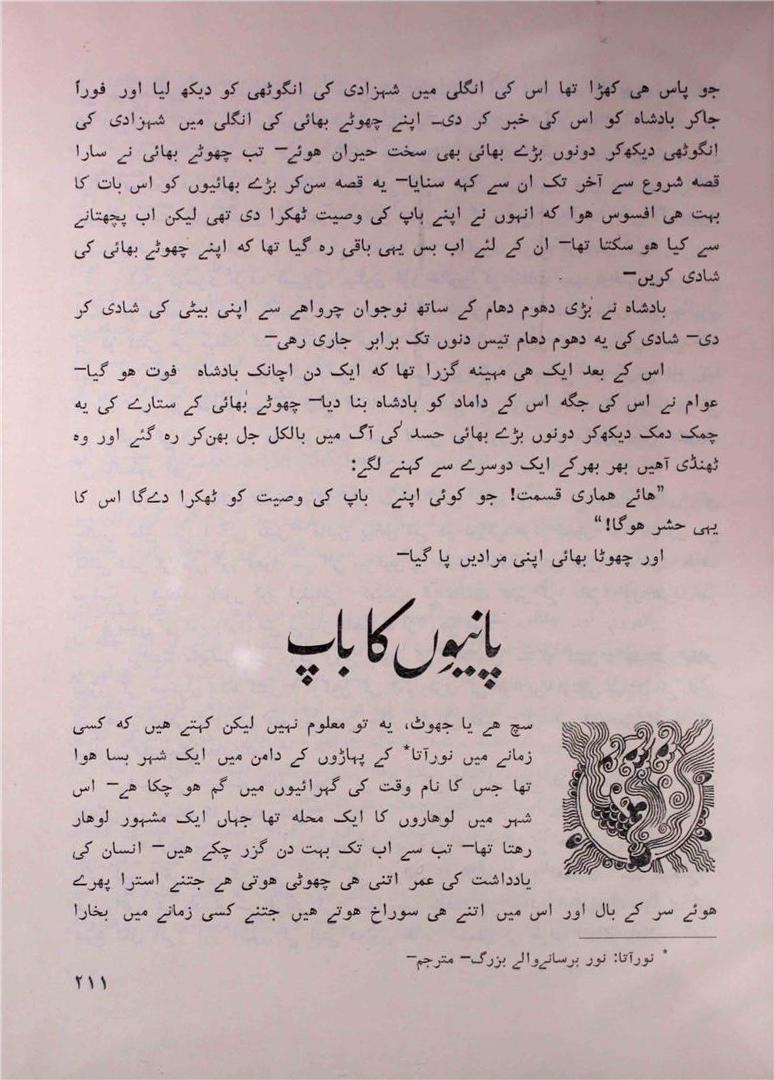 جو پاس ھی کھڑا تھا اس کی انگلی میں شہزادی کی انگوٹھی کو دیکھ لیا اور فوراً
جاکر بادشاہ کو اس کی خبر کر دی۔ اپنے چھوٹے بھائی کی انگلی میں شہزادی کی
انگوٹھی دیکھ‌کر دونوں بڑے بھائی بھی سخت حیران ھوئے— تب چھوٹے بھائی نے سارا
قصہ شروع سے آخر تک ان سے کہہ سنایا— یہ قصہ سن‌کر بڑے بھائیوں کو اس بات کا
بہت ھی افسوس ھوا کہ انہوں نے اپنے باپ کی وصیت ٹھکرا دی تھی لیکن اب پچھتانے
سے کیا ھو سکتا تھا— ان کے لئے اب بس یہی باقی رہ گیا تھا کہ اپنے چھوٹے بھائی کی
شادی کریں—
بادشاہ نے بڑی دھوم دھام کے ساتھ نوجوان چرواھے سے اپنی بیٹی کی شادی کر
دی— شادی کی یہ دھوم دھام تیس دنوں تک برابر جاری رھی—
اس کے بعد ایک ھی مہینہ گزرا تھا کہ ایک دن اچانک بادشاہ فوت ھو گیا—
عوام نے اس کی جگہ اس کے داماد کو بادشاہ بنا دیا— چھوٹے بھائی کے ستارے کی یہ
چمک دمک دیکھ‌کر دونوں بڑے بھائی حسد کی آگ میں بالکل جل بھن‌کر رہ گئے اور وہ
ٹھنڈی آھیں بھر بھرکے ایک دوسرے سے کہنے لگے:
”ھائے ھماری قسمت! جو کوئی اپنے باپ کی وصیت کو ٹھکرا دےگا اس کا
یہی حشر ھوگا!“
اور چھوٹا بھائی اپنی مرادیں پا گیا—
پانیوں کا باپ
سچ ھے یا جھوٹ، یہ تو معلوم نہیں لیکن کہتے ھیں کہ کسی
زمانے میں نورآتا* کے پہاڑوں کے دامن میں ایک شہر بسا ھوا
تھا جس کا نام وقت کی گہرائیوں میں گم ھو چکا ھے— اس
شہر میں لوھاروں کا ایک محلہ تھا جہاں ایک مشہور لوھار
رھتا تھا— تب سے اب تک بہت دن گزر چکے ھیں— انسان کی
یادداشت کی عمر اتنی ھی چھوٹی ھوتی ھے جتنے استرا پھرے
ھوئے سر کے بال اور اس میں اتنے ھی سوراخ ھوتے ھیں جتنے کسی زمانے میں بخارا
* نورآتا: نور برسانےوالے بزرگ— مترجم—
۲۱۱